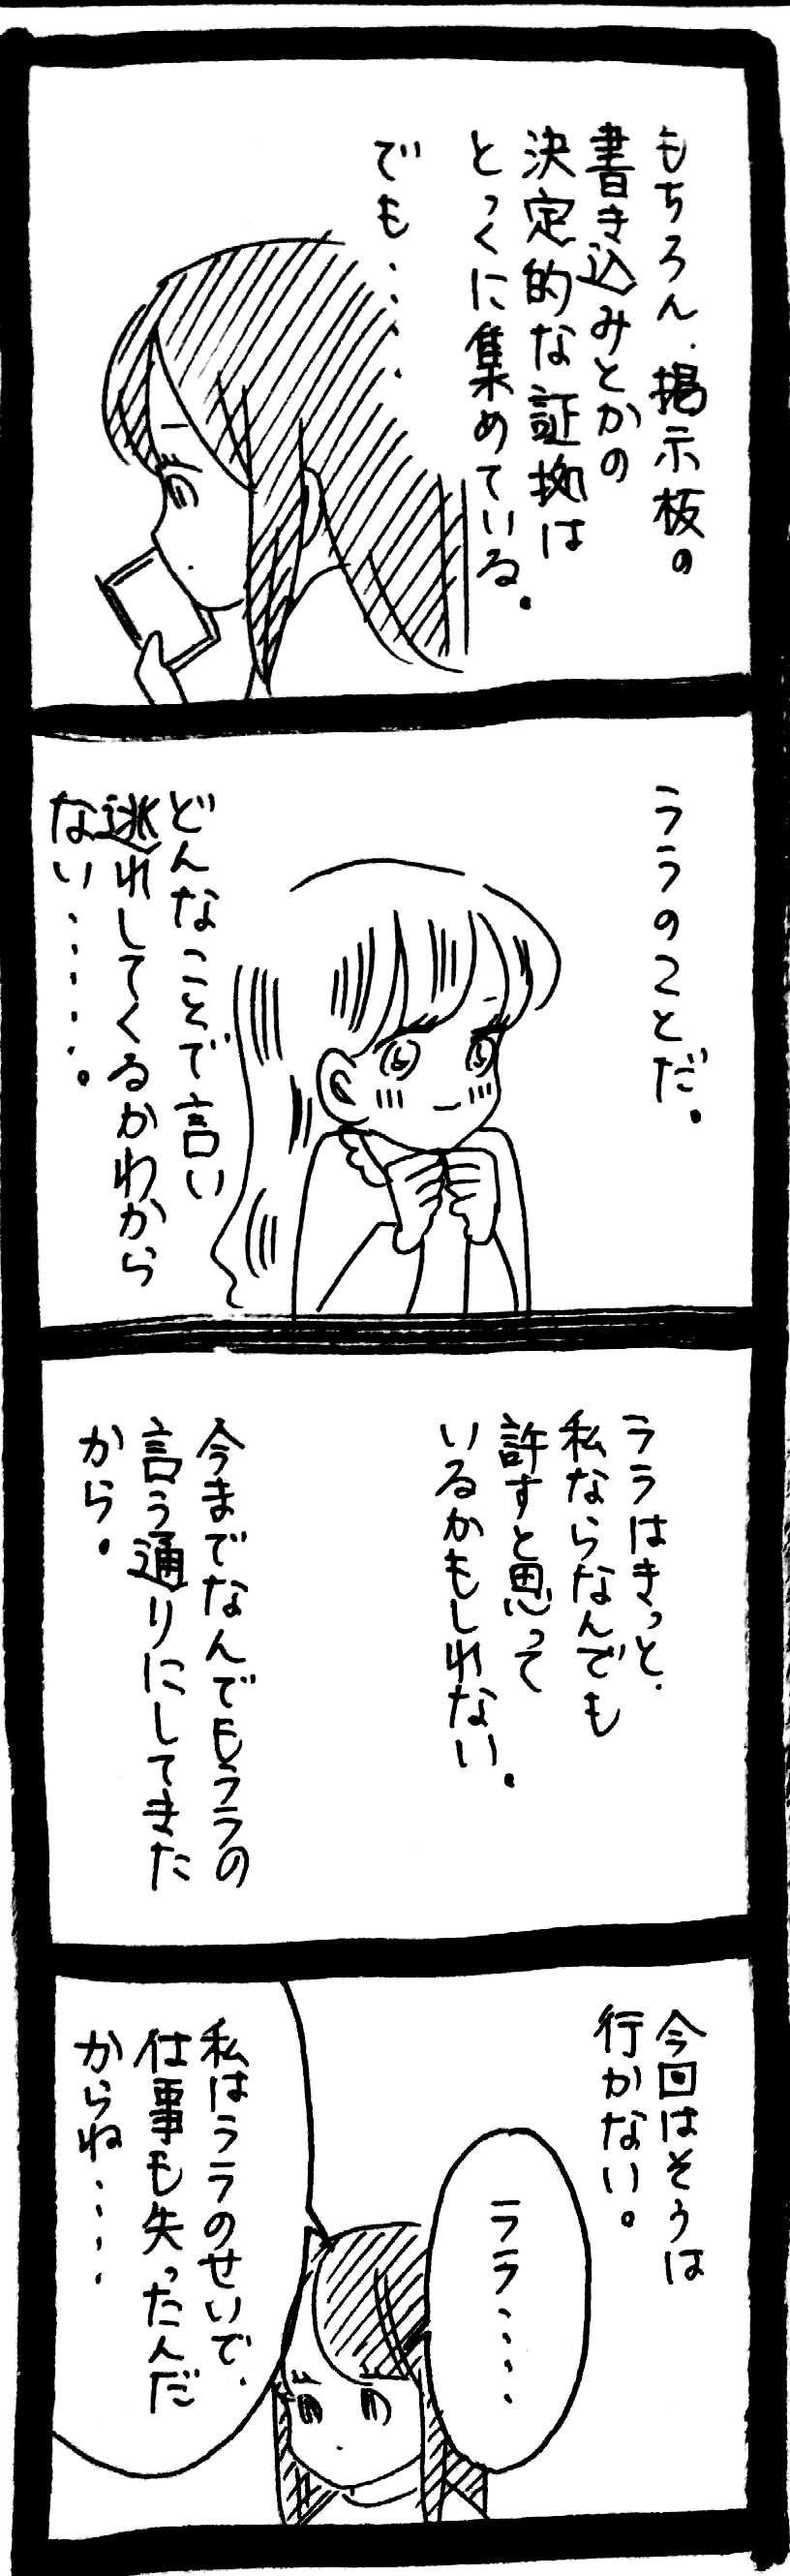 もちろん、掲示板の
書き込みとかの
決定的な証拠は
とっくに集めている。
でも・・・・
ララのことだ。
どんなことで言い
逃れしてくるかわから
ない・・・・・。
ララはきっと、
私ならなんでも
許すと思って
いるかもしれない。
今までなんでもララの
言う通りにしてきた
から。
今回はそうは
行かない。
ララ・・・・
私はララのせいで、
仕事も失ったんだ
からね・・・・